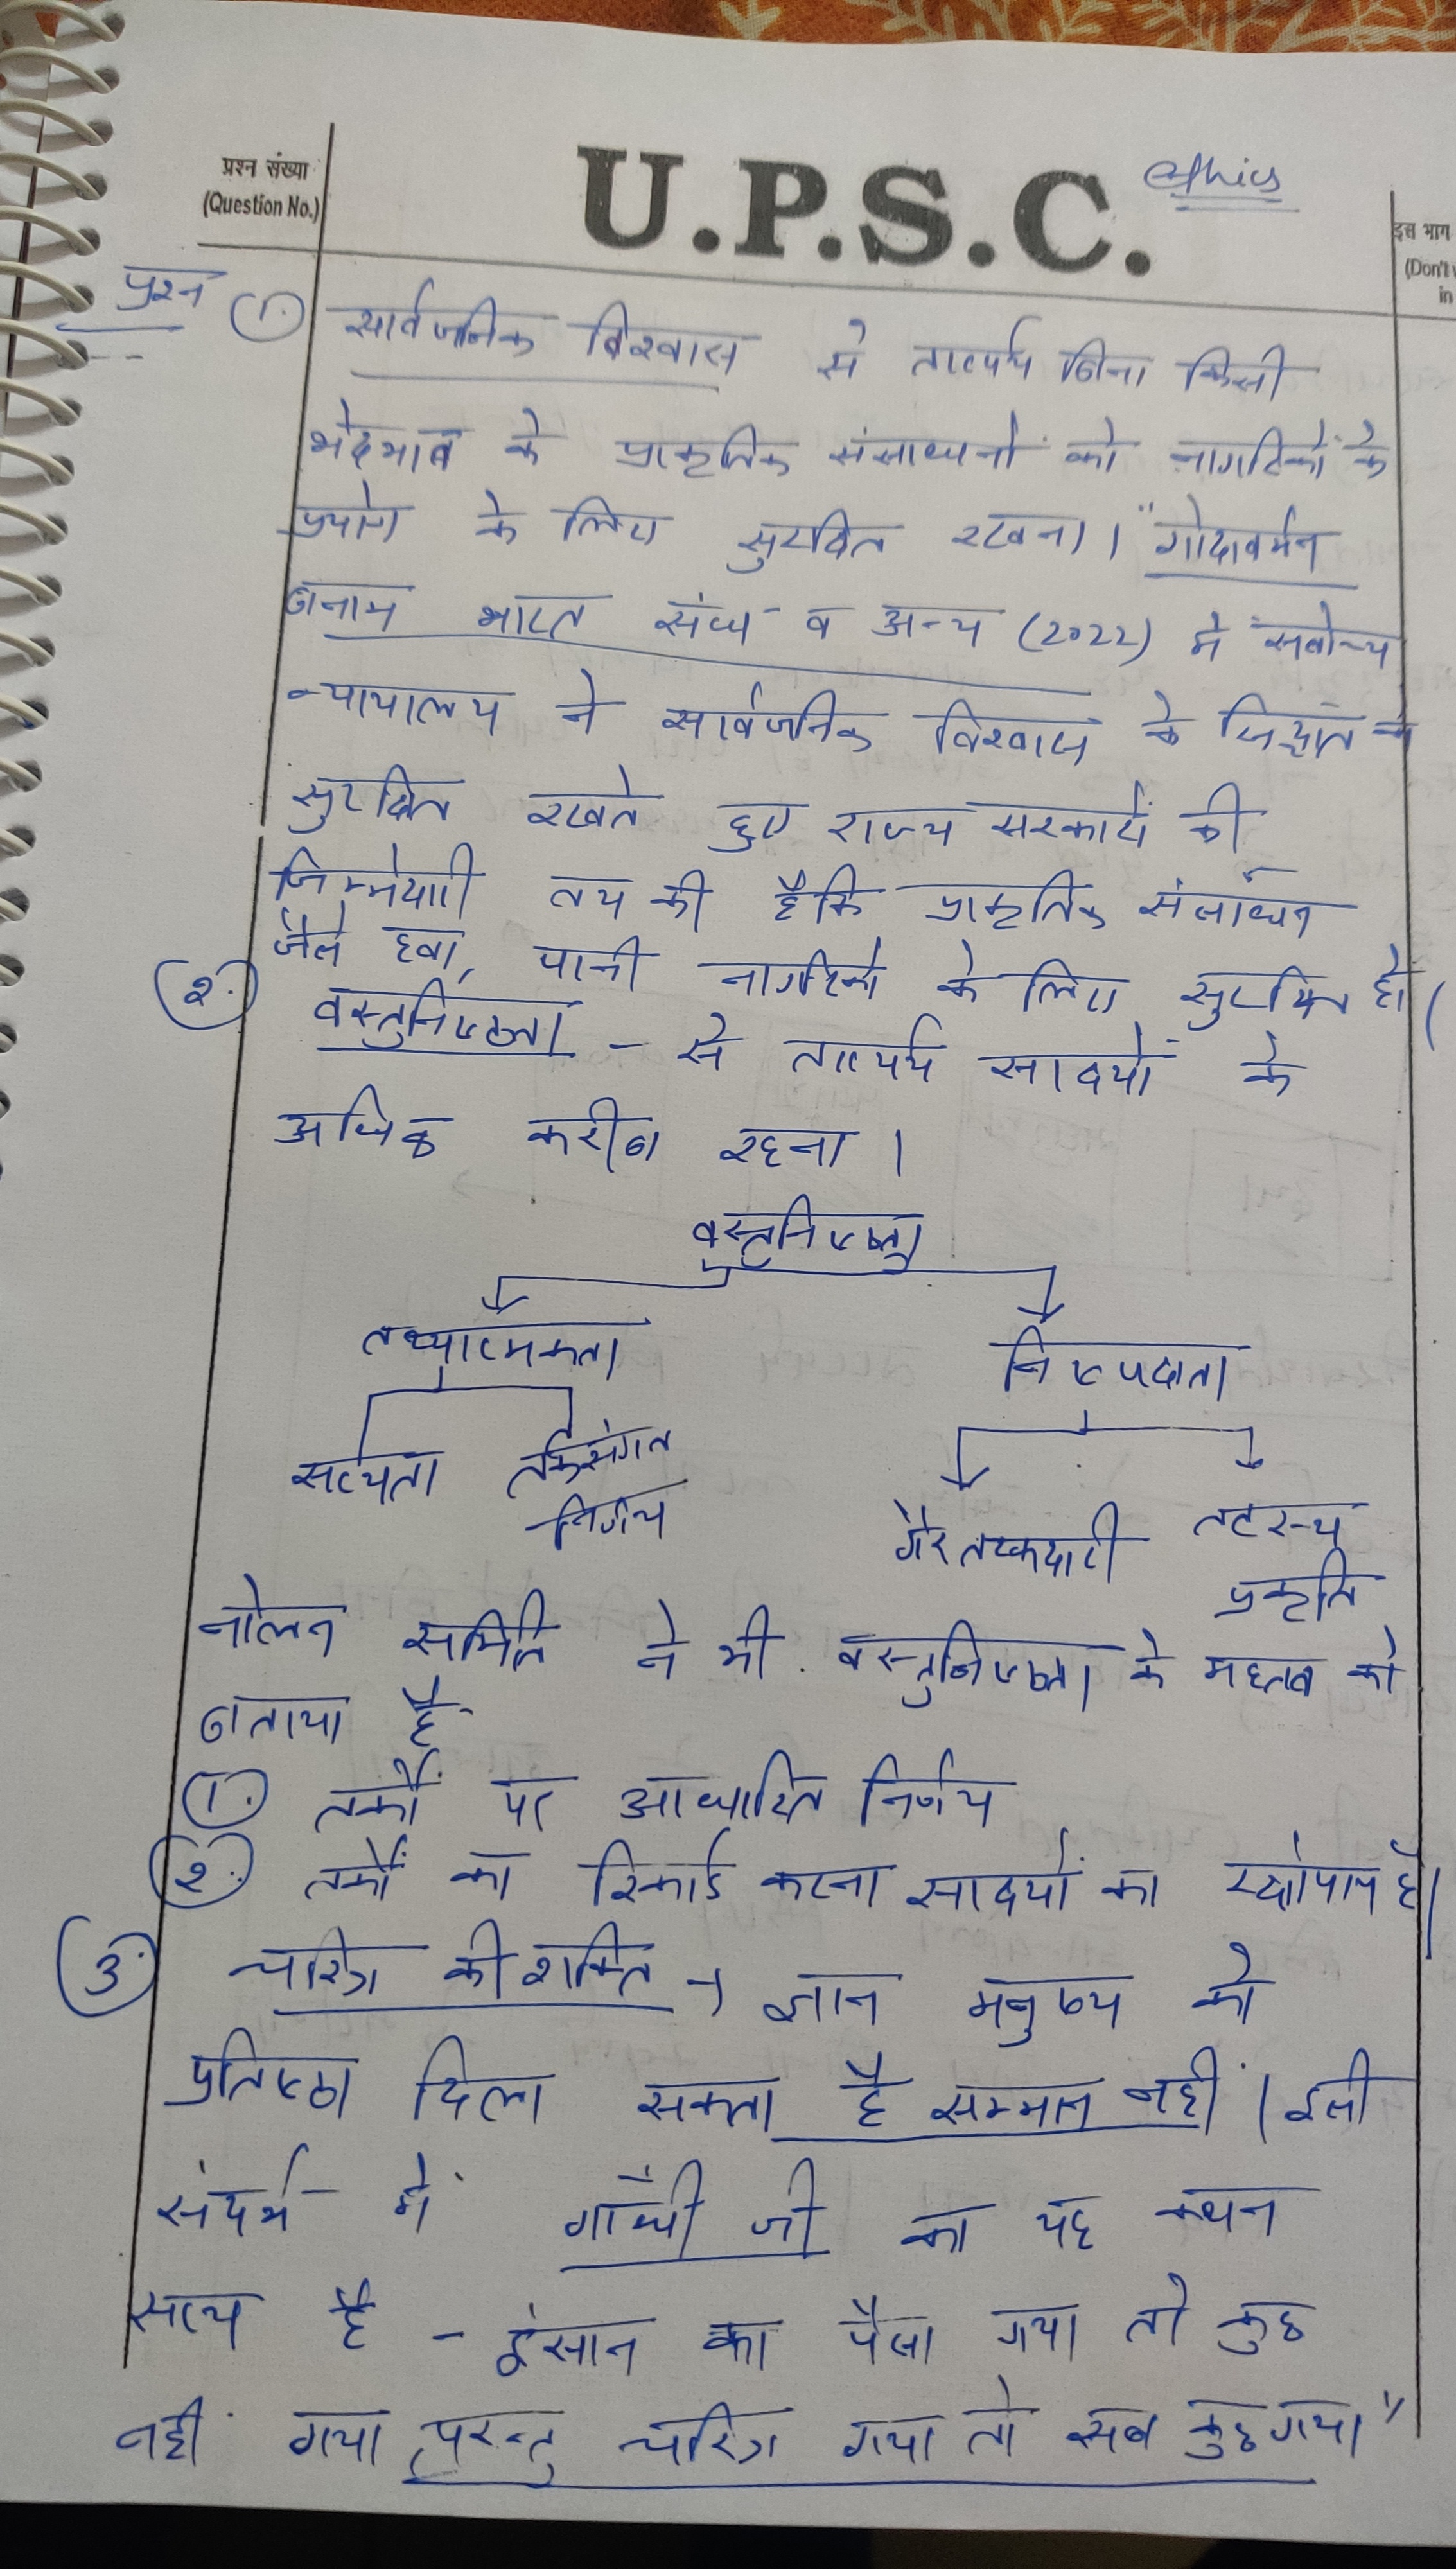 प्रश्न संख्या
(Question No.)
U.P.S.C.
ethics
इस भाग
(Don't
in
प्रश्न 1. सार्वजनिक विश्वास से तात्पर्य बिना किसी
भेदभाव के प्राकृतिक संसाधनों को नागरिकों के
प्रयोग के लिए सुरक्षित रखना। "गोदावर्मन
बनाम भारत संघ व अन्य (2022) में सर्वोच्च
न्यायालय ने सार्वजनिक विश्वास के सिद्धांत को
सुरक्षित रखते हुए राज्य सरकारों की
जिम्मेदारी तय की है कि प्राकृतिक संसाधन
जैसे हवा, पानी नागरिकों के लिए सुरक्षित हो।
2. वस्तुनिष्ठता – से तात्पर्य साक्ष्यों के
अधिक करीब रहना।
वस्तुनिष्ठता
तथ्यात्मकता निष्पक्षता
सत्यता तर्कसंगत निर्णय
गैर तरफदारी तटस्थ प्रकृति
नोलन समिति ने भी वस्तुनिष्ठता के महत्व को
बताया है-
1. तर्कों पर आधारित निर्णय
2. तर्कों का रिकार्ड करना साक्ष्यों का है।
3. चरित्र की शक्ति → ज्ञान मनुष्य को
प्रतिष्ठा दिला सकता है सम्मान नहीं। इसी
संदर्भ में गाँधी जी का यह कथन
सत्य है – इंसान का पैसा गया तो कुछ
नहीं गया परन्तु चरित्र गया तो सब कुछ गया"